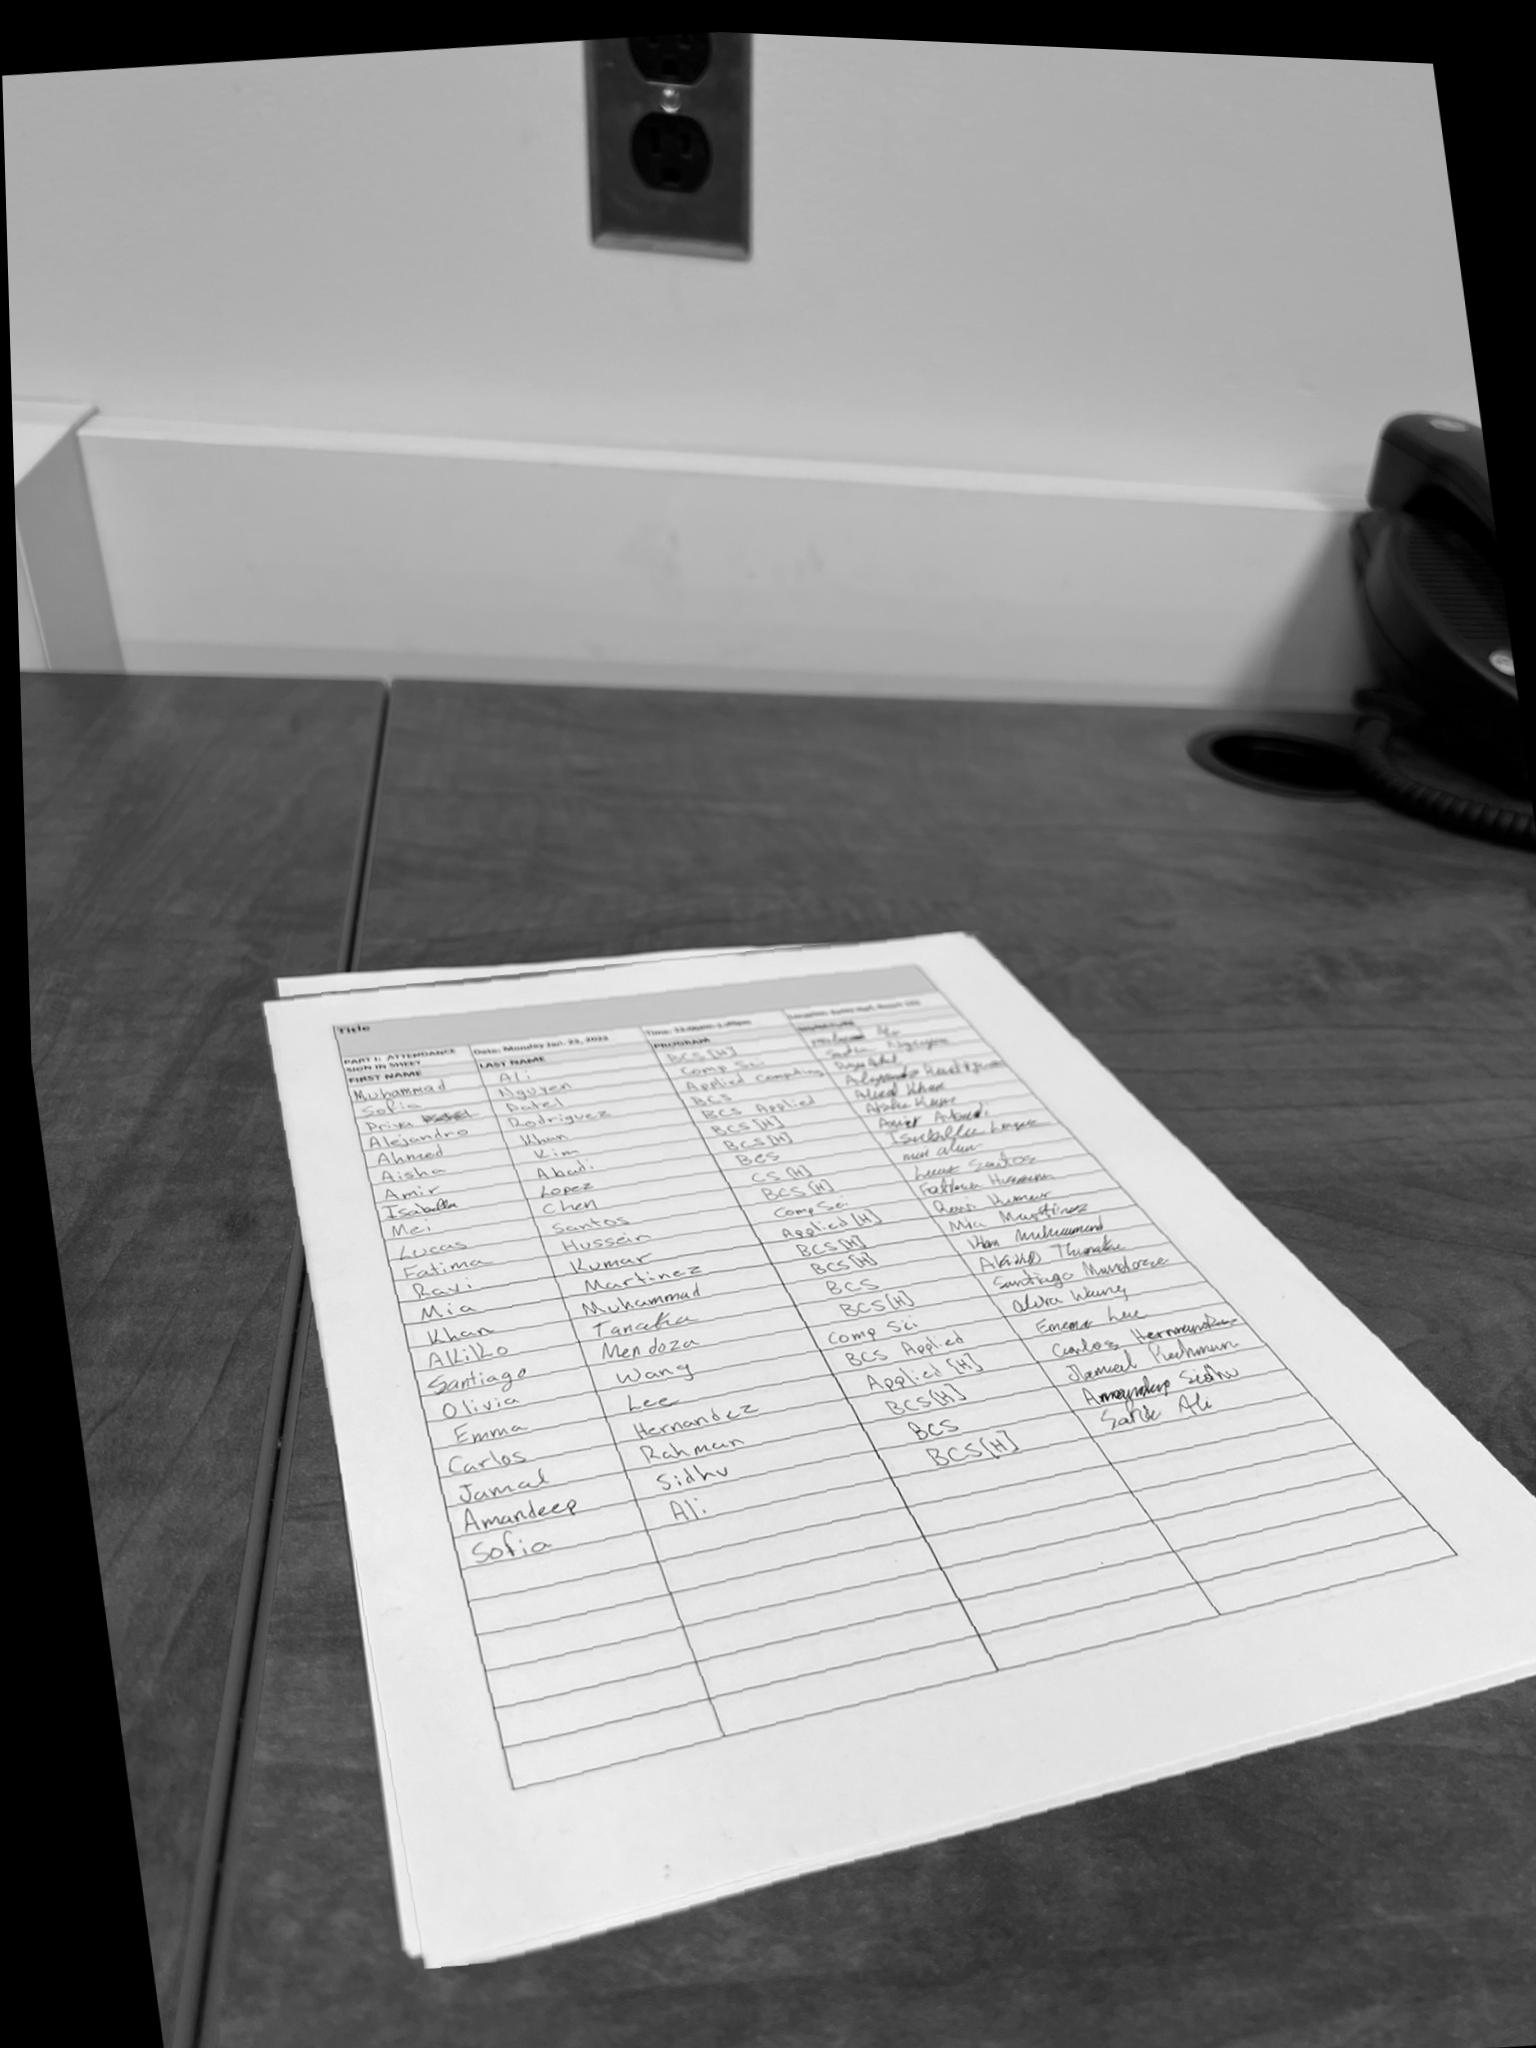 Title
PART I: ATTENDANCE SIGN IN SHEET Date: Monday Jan. 23, 2023 Time:
FIRST NAME LAST NAME PROGRAM SIGNATURE
Muhammad Ali BCS [H]
Sofia Nguyen Comp Sci Nguyen
Priya Patel Applied Computing
Alejandro Rodriguez BCS
Ahmed Khan BCS Applied Khan
Aisha Kim BCS [H]
Amir Abadi BCS [H] Abadi
Isabella Lopez BCS Isabella
Mei Chen CS [H]
Lucas Santos BCS [H] Lucas Santos
Fatima Hussein Comp Sci Fatima
Ravi Kumar Applied [H] Ravi Kumar
Mia Martinez BCS [H] Mia Martinez
Khan Muhammad BCS [H] Khan Muhammad
Akiko Tanaka BCS Akiko
Santiago Mendoza BCS [H] Santiago Mendoza
Olivia Wang Comp Sci Wang
Emma Lee BCS Applied Emma Lee
Carlos Hernandez Applied [H] Carlos Hernandez
Jamal Rahman BCS [H] Jamal
Amandeep Sidhu BCS Amandeep Sidhu
Sofia Ali BCS [H] Ali